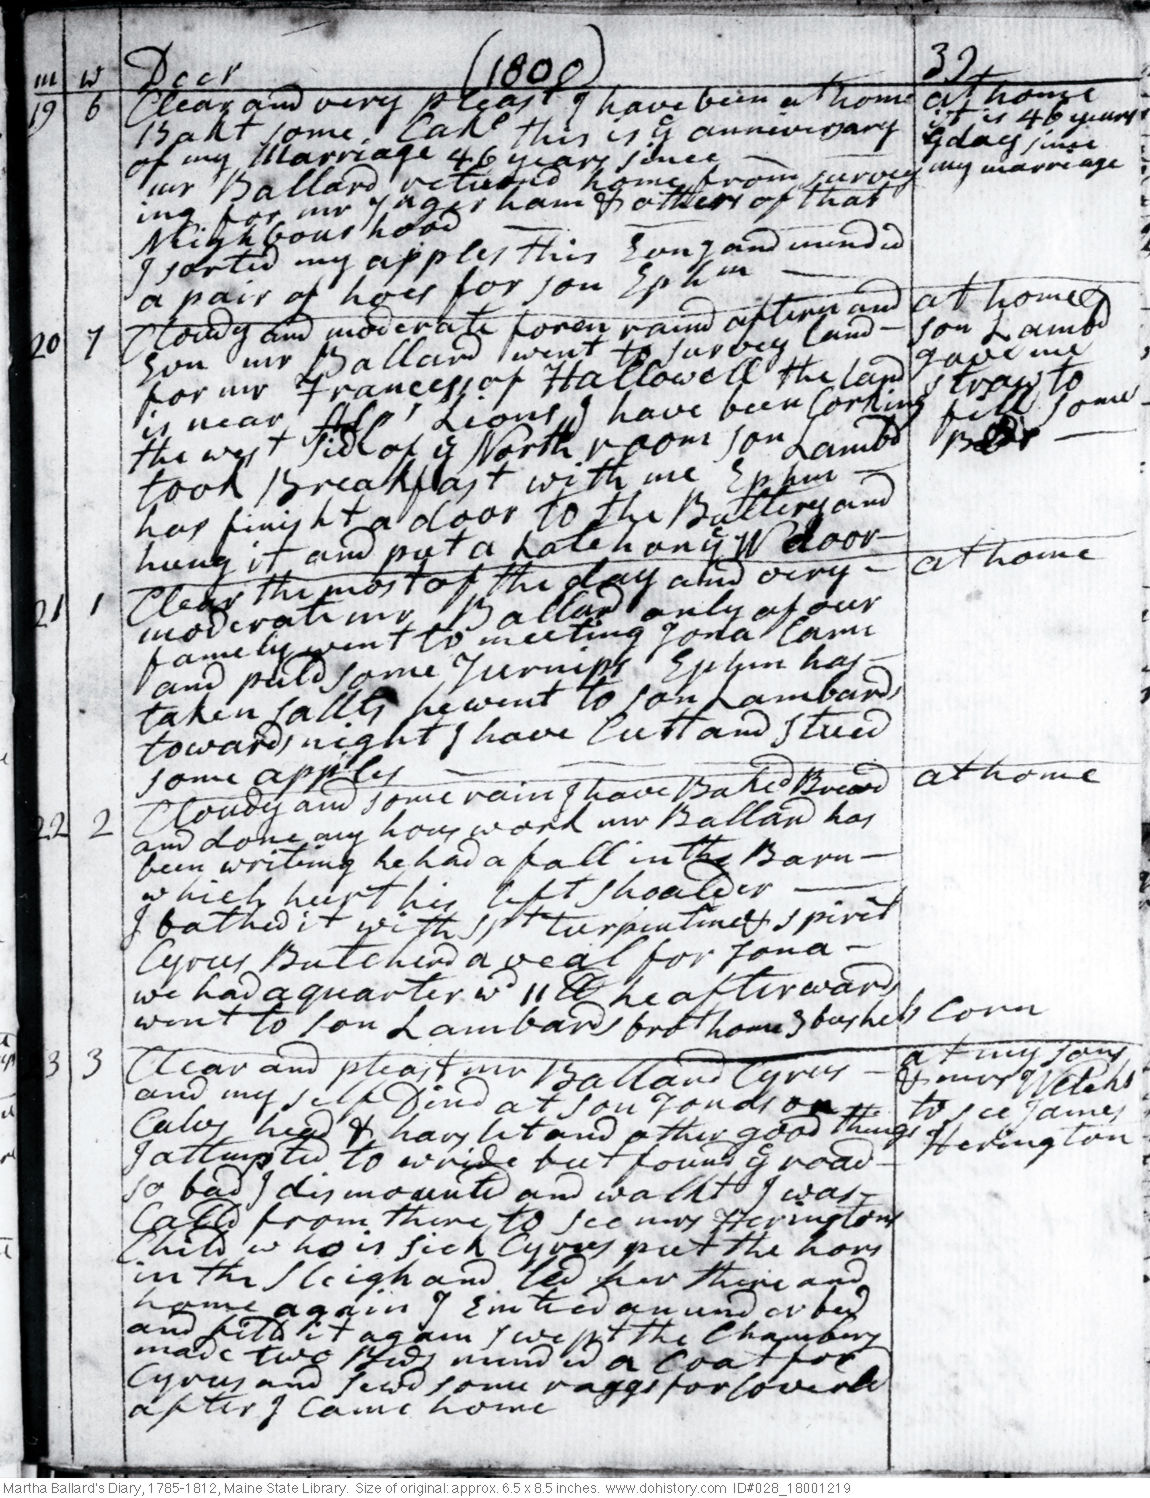 m w Decr (1800) 32
19 6 Clear and very pleast I have been at home at home
Bakt some Cake this is ye anniversary it is 46 years
of my Marriage 46 years since ye day since
mr Ballard returnd home from survey my marriage
ing for mr Ingerham & others of that
Neighbourhood
I sorted my apples this Evng and mended
a pair of hoes for son Ephm
20 7 Cloudy and moderate foren raind aftern and at home
Evn mr Ballard went to survey land son Lambd
for mr Francess of Hallowell the land gave me
is near Lions I have been Corking straw to
the west Side of ye North room son Lambd fill some
took Breakfast with me Ephm Beds
has finisht a door to the Buttery and
hung it and put a Latch on ye W door
21 1 Clear the most of the day and very at home
moderate mr Ballard only of our
famely went to meeting Jona Came
and puld some Turnips Ephm has
taken salts he went to son Lambards
towards night I have Cutt and stued
some apples
22 2 Cloudy and some rain I have Baked Bread at home
and done my hous work mr Ballard has
been writing he had a fall in the Barn
which hurt his left shoalder
I bathed it with spt turpintine & spirit
Cyrus Butcherd a veal for Jona
we had a quarter wd 11 lb he afterwards
went to son Lambards brot home 3 bushels Corn
23 3 Clear and pleast mr Ballard Cyrus at my sons
and my self Dind at son Jonas on & mrs Welchs
Calvs head & harslet and other good things to see James
I attempted to wride but found ye road Herington
so bad I dismounted and walkt I was
Calld from there to see mrs Heringtons
Child who is sick Cyrus put the hors
in the sleigh and led her there and
home again I Emtied an under bed
and filld it again swept the Chambers
made two Beds mended a Coat for
Cyrus and sewd some raggs for Coverld
after I came home
Martha Ballard's Diary, 1785-1812, Maine State Library. Size of original: approx. 6.5 x 8.5 inches. www.dohistory.com ID#028_18001219